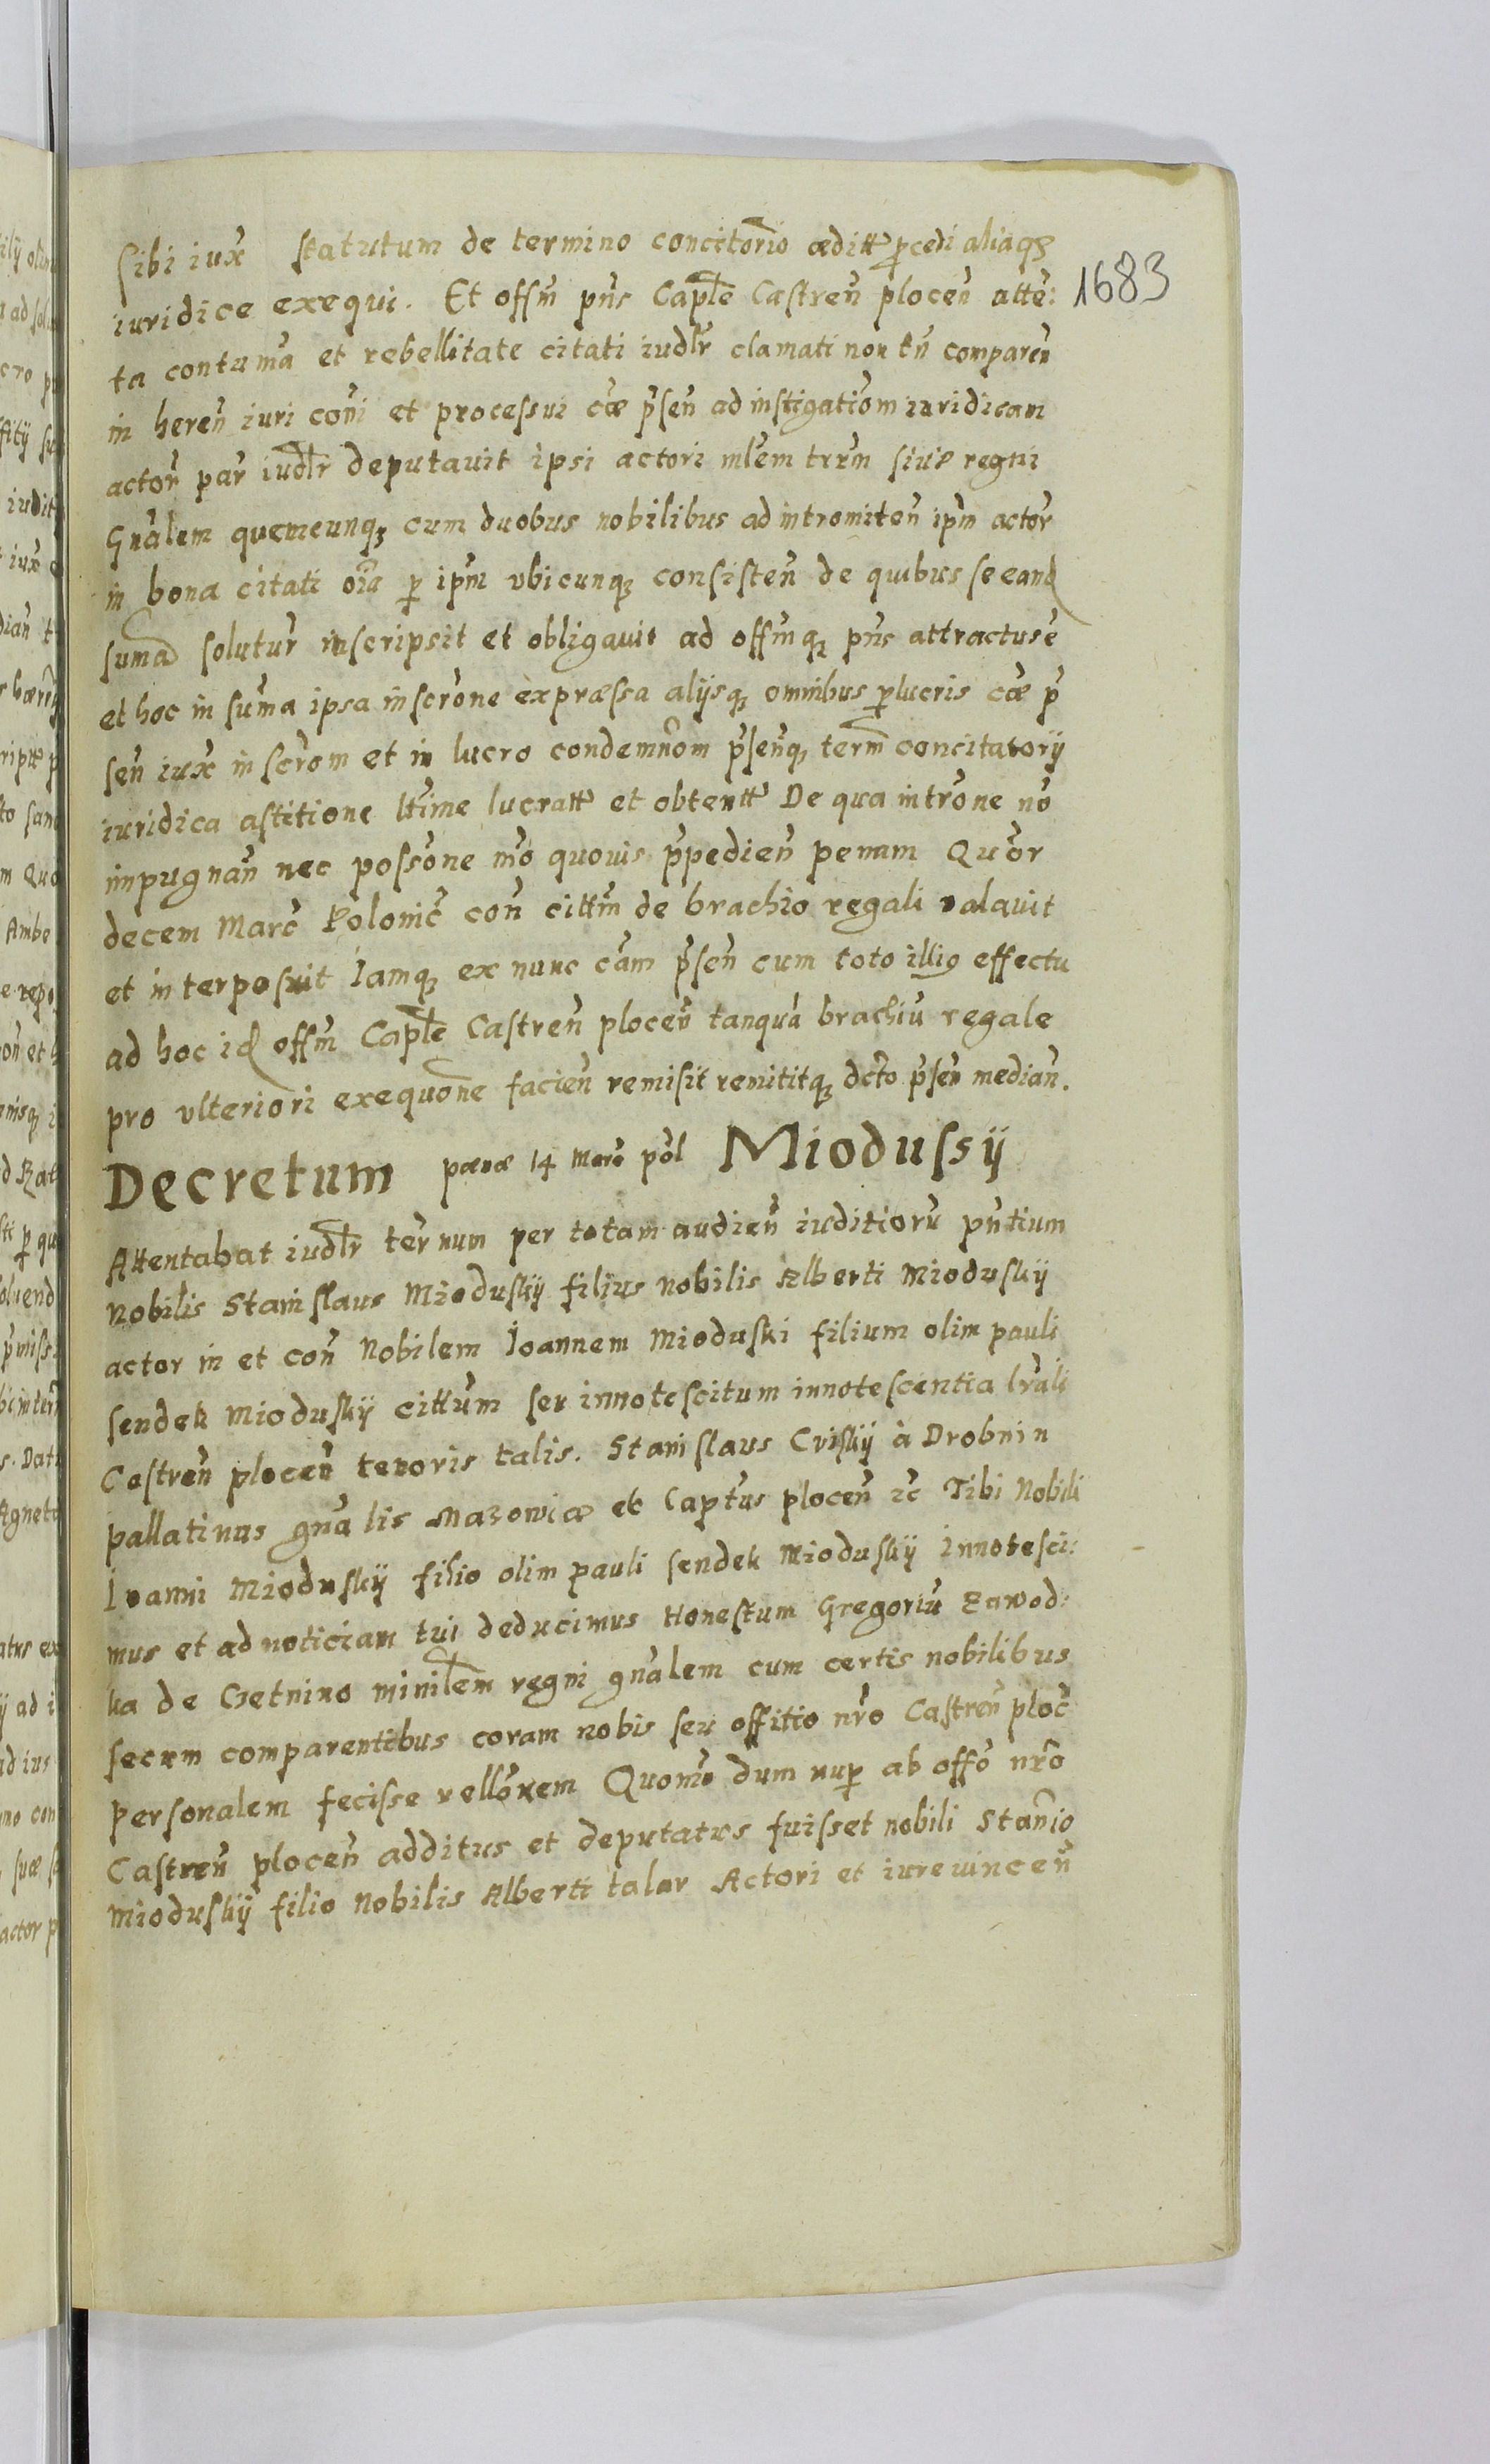 sibi iux̃ statutum de termino concitorio æditt pcedi aliaqȝ
1683
iuridice exequi. Et offm̃ pn̄s Caple Castren̄ plocen̄ atte:
ta contuma et rebellitate citati iudlr clamati non tn̄ comparen̄
in heren̄ iuri con̄i et processui cæ p̄sen̄ ad instigatiom iuridicam
acton̄ par iudlr deputavit ipsi actori mlem trr̄m sive regni
Gnālem quemcunqȝ cum duobus nobilibus ad intromiten̄ ipm̄ actor
in bona citati oīa p ipm̄ ubicunqȝ consisten̄ de quibus se eand
suma solutur inscripsit et obligavit ad offm̄qȝ pn̄s attractus ē
et hoc in suma ipsa inscrone expræssa alijsqȝ omnibus plucris cæ p̄
sen̄ iux̃ inscrom et in lucro condemnom p̄sen̄qȝ term concitatorij
iuridica astitione ltime lucratt et obtentt De qua introne no
impugnan̄ nec possone mo quovis p̄pedien̄ penam Quor
decem Marc Polonic con̄ cittm de brachio regali valavit
et interposuit Iamqȝ ex nunc cam p̄sen̄ cum toto illiq effectu
ad hoc id offm̄ Caple Castren̄ plocen̄ tanqua brachiu regale
pro ulteriori exequone facien̄ remisit remititqȝ dcto p̄sen̄ median̄.
Decretum pænæ 14 Marc pol Miodussij
Attentabat iudlr ternum per totam audien̄ iuditioru pn̄tium
Nobilis Stanislaus Mioduskij filius nobilis Alberti Mioduskij
actor in et con̄ Nobilem Ioannem Mioduski filium olim pauli
sendek Mioduskij cittum seu innotescitum innotescentia lrali
Castren̄ plocen̄ tenoris talis. Stanislaus Criskij à Drobnin
pallatinus gnalis Mazowiæ et Captus plocen̄ ic Tibi Nobili
Ioanni Mioduskij filio olim pauli sendek Mioduskij Innotesci:
mus et ad noticiam tui deducimus Honestum Gregoriu Zawod:
ka de Czetnino minilem regni gnalem cum certis nobilibus
secum comparentibus coram nobis seu offitio nro Castren̄ ploc
personalem fecisse rellonem Quomo dum nup ab offo nro
Castren̄ plocen̄ additus et deputatus fuisset nobili Stanio
Mioduskij filio Nobilis Alberti talar Actori et iurevincen̄